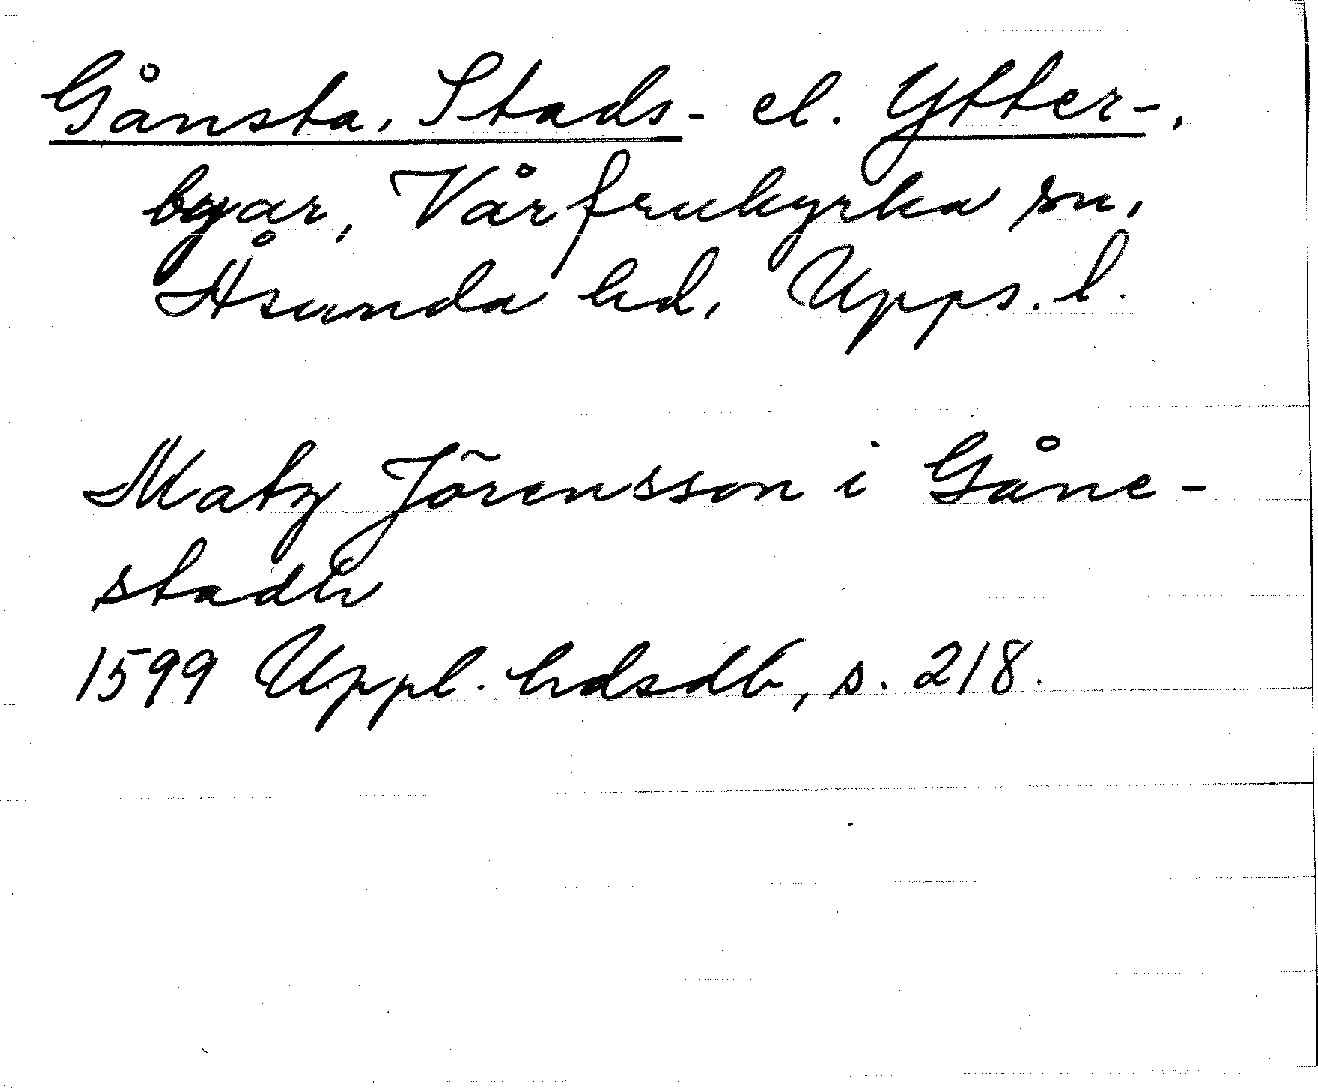 Gånsta, Stads- el. Ytter-,
byar, Vårfrukyrka sn,
Åsunda hd, Upps. l.
Matz Jörensson i Gåne-
stadh
1599 Uppl. hdsdb, s. 218.